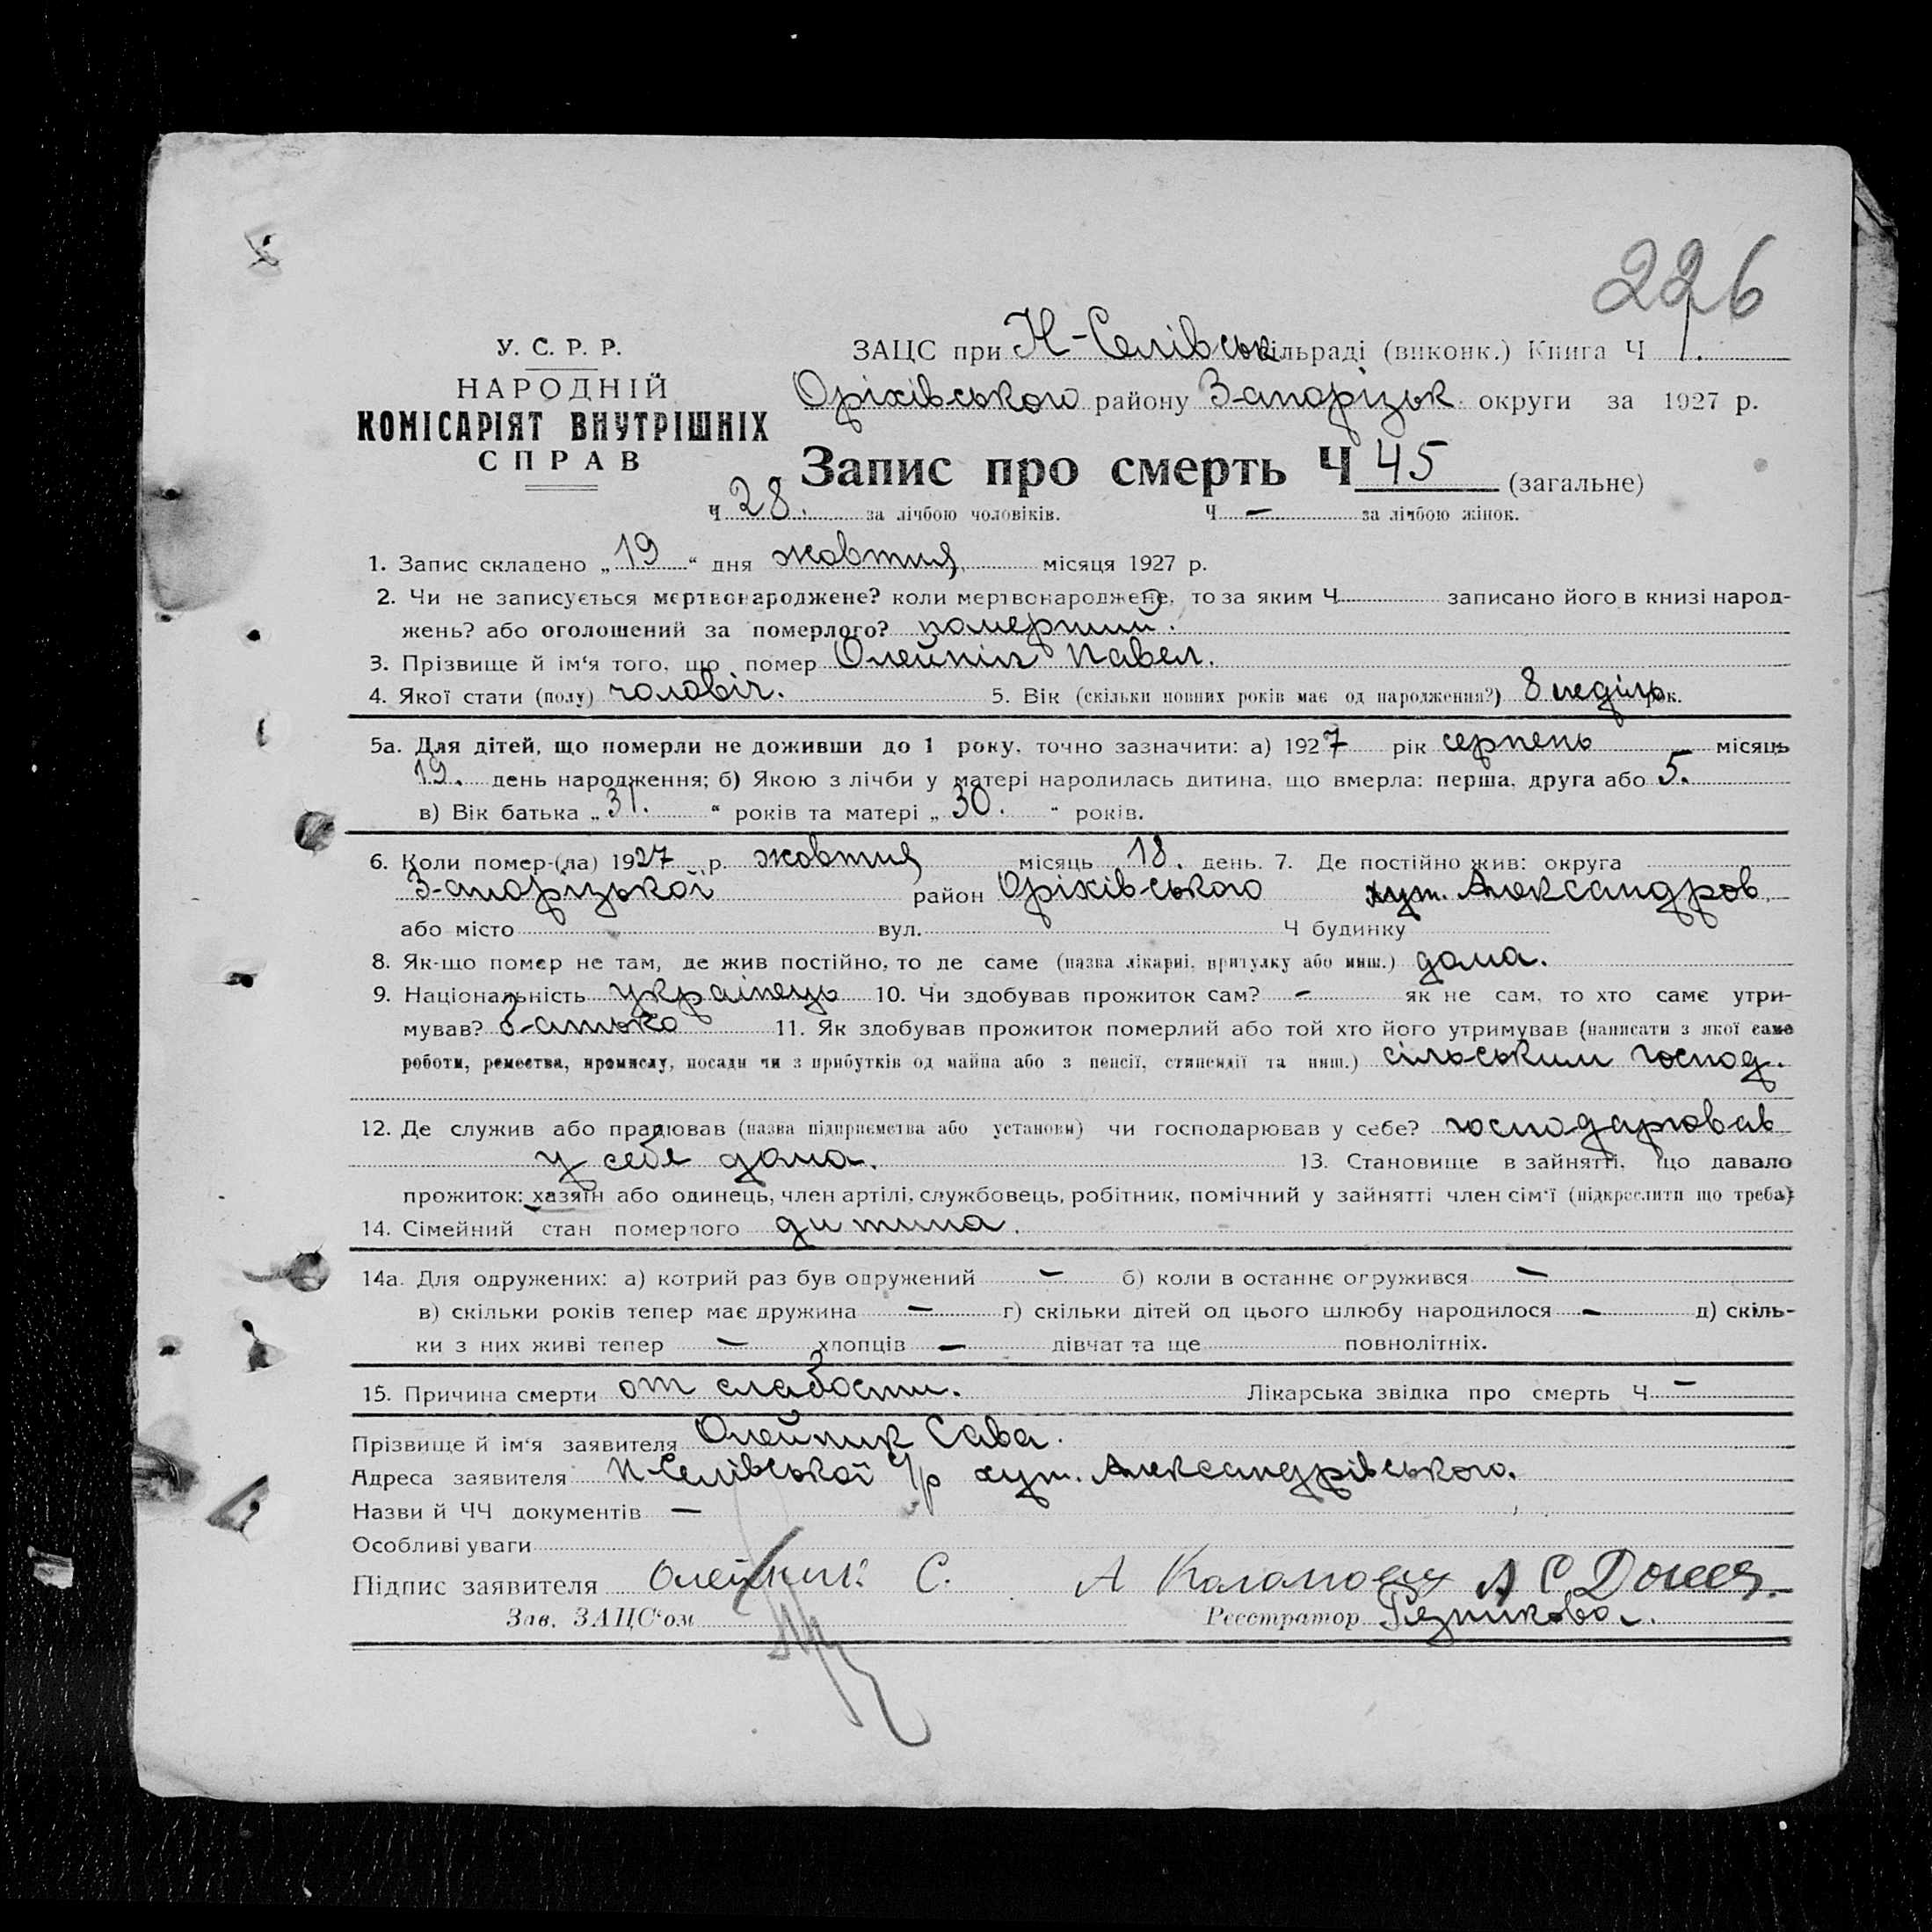 226
У. С. Р. Р.
НАРОДНІЙ
КОМІСАРІЯТ ВНУТРІШНІХ
СПРАВ
ЗАЦС при Н-Селівськ сільраді (виконк.) Книга Ч 1.
Оріхівського району Запорізьк округи за 1927 р.
Запис про смерть Ч 45 (загальне)
Ч 28. за лічбою чоловіків. Ч — за лічбою жінок.
1. Запис складено „19“ дня жовтня місяця 1927 р.
2. Чи не записується мертвонароджене? коли мертвонароджене, то за яким Ч записано його в книзі народ-
жень? або оголошений за померлого? померший.
3. Прізвище й ім‘я того, що помер Олейнік Павел.
4. Якої стати (полу) чоловіч. 5. Вік (скільки повних років має од народження?) 8 неділь рок.
5а. Для дітей, що померли не доживши до 1 року, точно зазначити: а) 1927 рік серпень місяць
19. день народження; б) Якою з лічби у матері народилась дитина, що вмерла: перша, друга або 5.
в) Вік батька „31.“ років та матері „30.“ років.
6. Коли помер-(ла) 1927 р. жовтня місяць 18. день. 7. Де постійно жив: округа
Запорізької район Оріхівського хут. Александров.
або місто вул. Ч будинку
8. Як-що помер не там, де жив постійно, то де саме (назва лікарні, притулку або инш.) дома.
9. Національність українець 10. Чи здобував прожиток сам? – як не сам, то хто саме утри-
мував? батько 11. Як здобував прожиток померлий або той хто його утримував (написати з якої саме
роботи, ремества, промислу, посади чи з прибутків од майна або з пенсії, стипендії та инш.) сільським господ.
12. Де служив або працював (назва підприємства або установи) чи господарював у себе? господарював
у себе дома. 13. Становище в зайнятті, що давало
прожиток: хазяїн або одинець, член артілі, службовець, робітник, помічний у зайнятті член сім‘ї (підкреслити що треба)
14. Сімейний стан померлого дитина.
14а. Для одружених: а) котрий раз був одружений — б) коли в останнє огружився —
в) скільки років тепер має дружина — г) скільки дітей од цього шлюбу народилося — д) скіль-
ки з них живі тепер — хлопців — дівчат та ще повнолітніх.
15. Причина смерти от слабости. Лікарська звідка про смерть Ч –
Прізвище й ім‘я заявителя Олейник Сава.
Адреса заявителя Н-Селівської с/р хут. Александрівського.
Назви й ЧЧ документів —
Особливі уваги
Підпис заявителя Олейник С. А
Зав. ЗАЦС‘ом Реєстратор Рєзнікова.